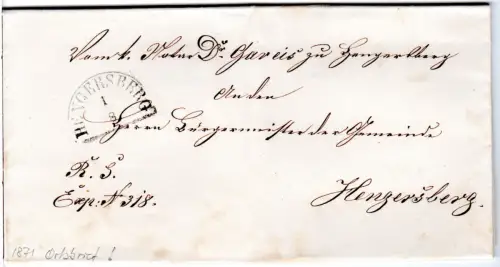 Vom k. Notar Dr. Gareis zu Hengersberg
HENGERSBERG
1
8
An den
Herrn Bürgermeister der Gemeinde
R. S.
Hengersberg.
Exp: N 318.
1871 Ortsbrief !